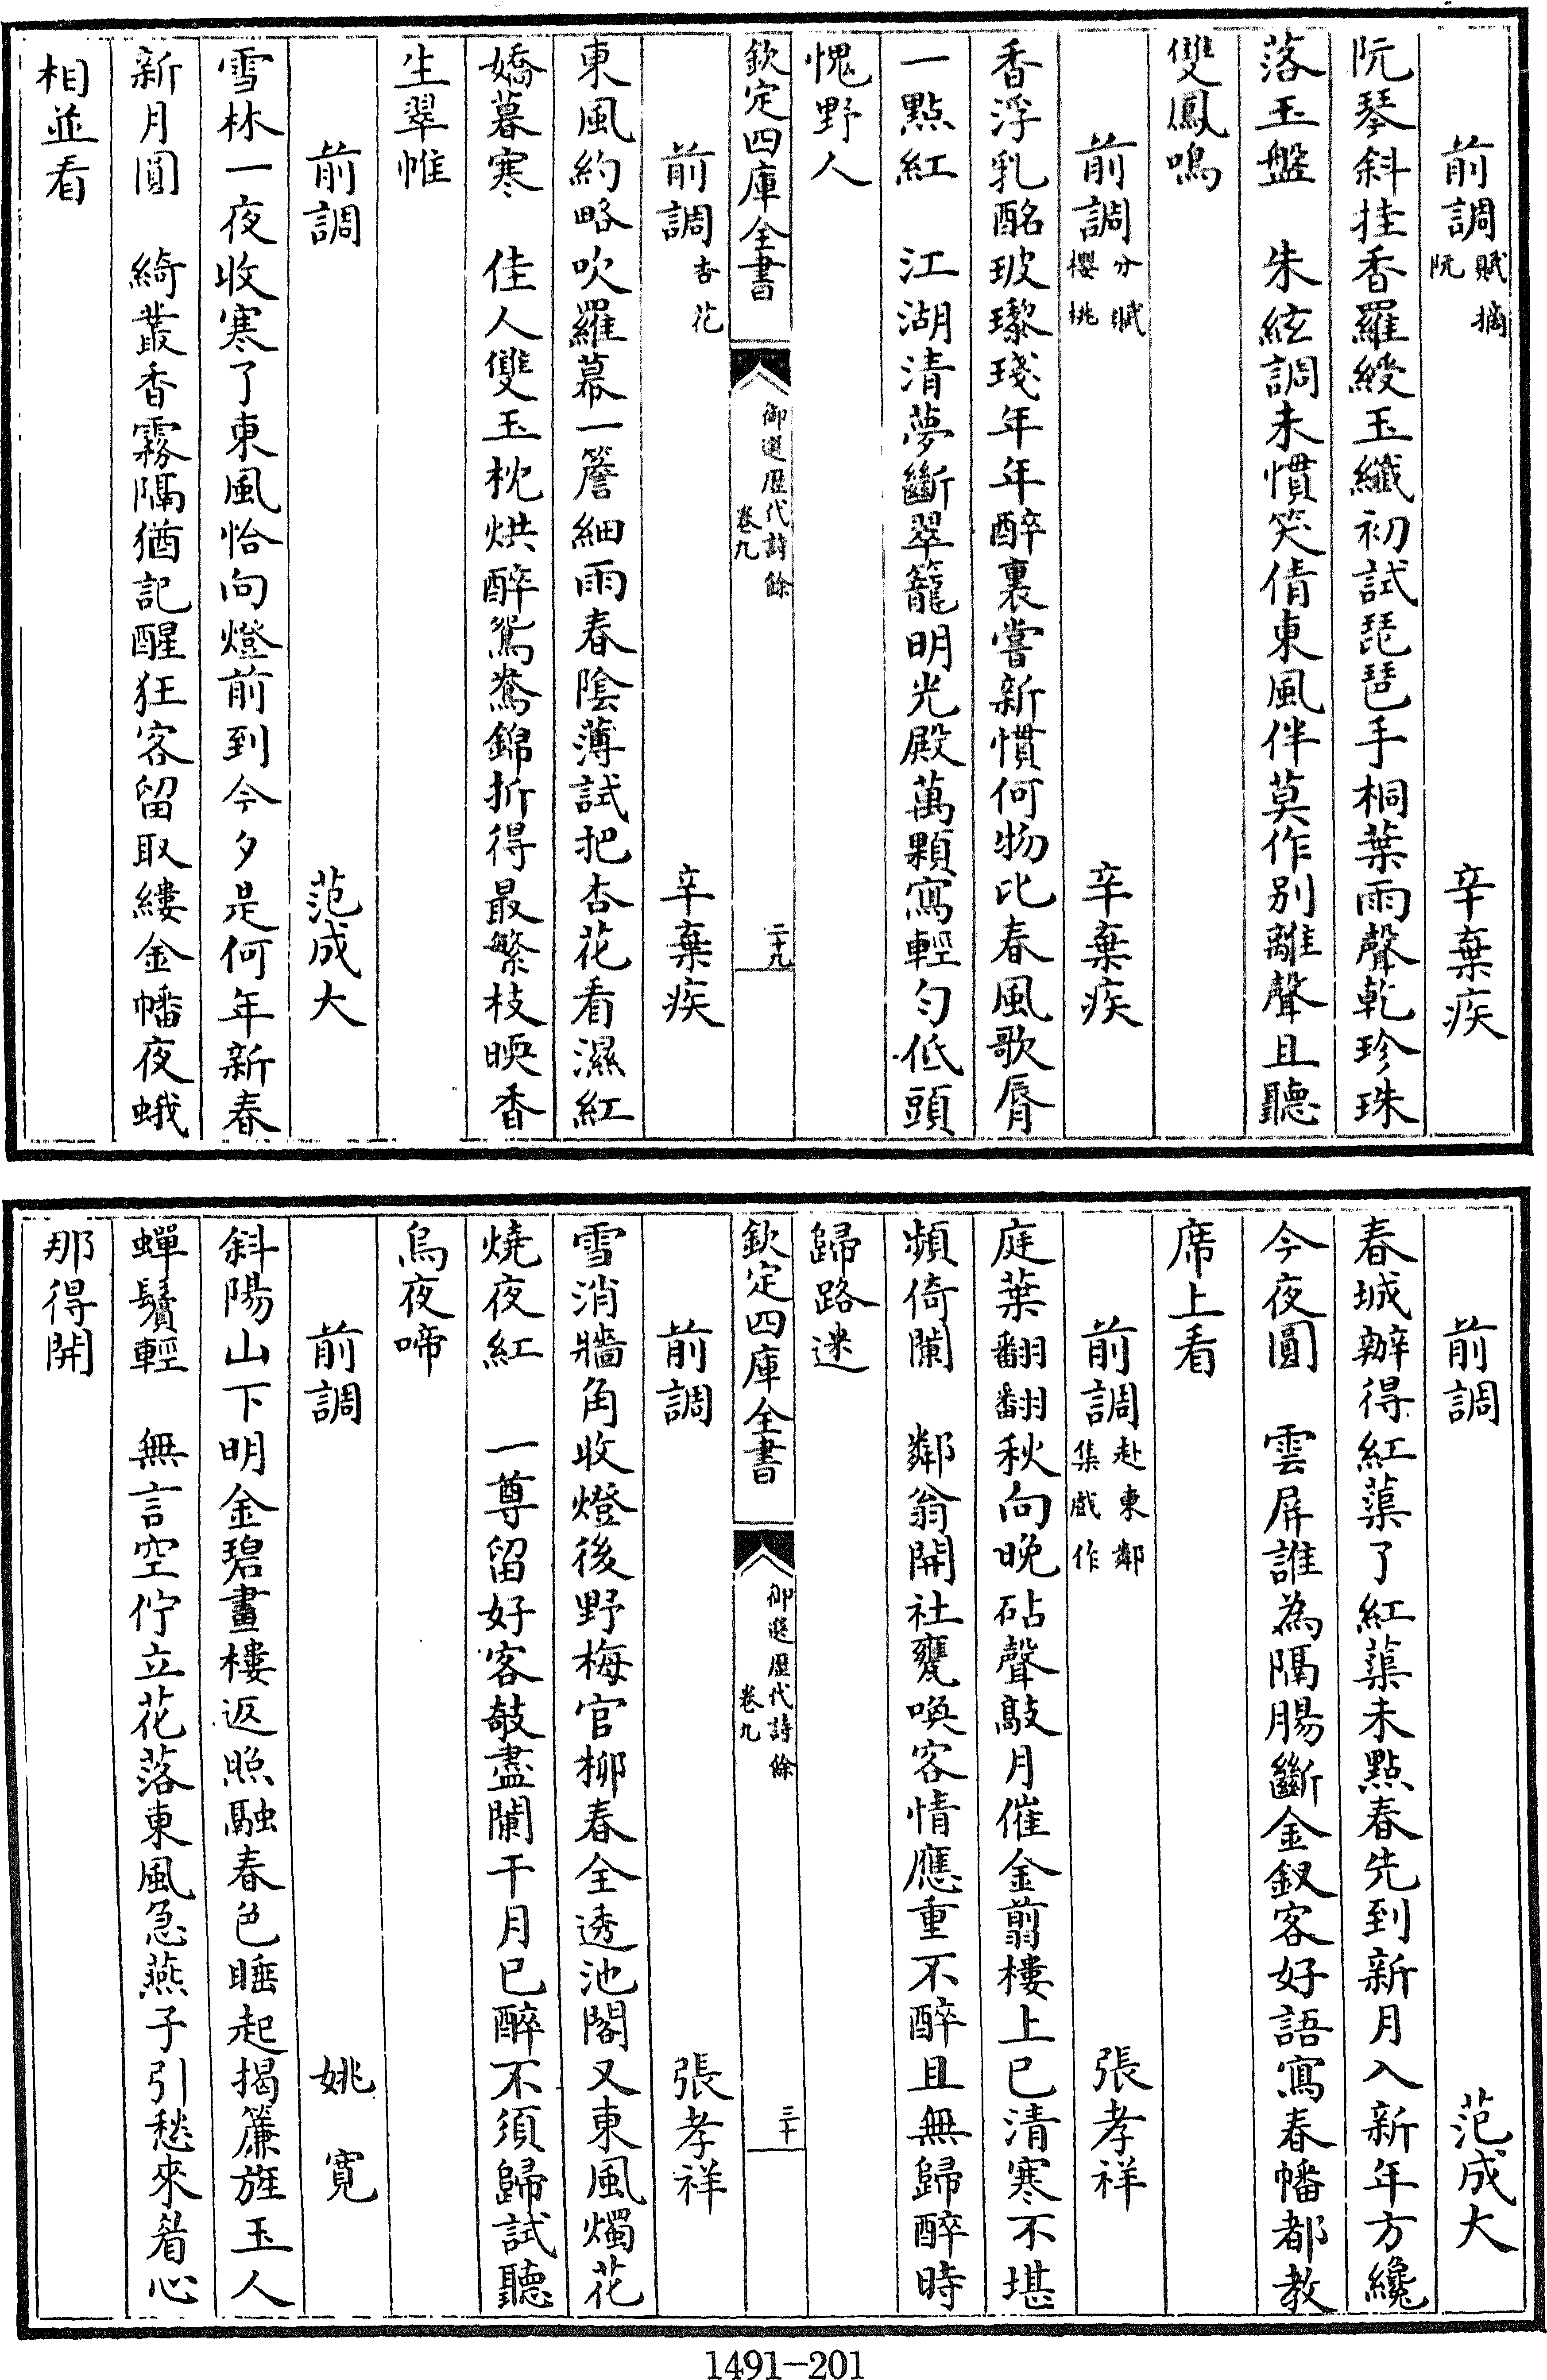 前調賦摘阮　辛棄疾
阮琴斜挂香羅綬玉纖初試琵琶手桐葉雨聲乾珍珠
落玉盤　朱絃調未慣笑倩東風伴莫作别離聲且聽
雙鳳鳴
前調分賦櫻桃　辛棄疾
香浮乳酪玻瓈琖年年醉裏嘗新慣何物比春風歌脣
一點紅　江湖清夢斷翠籠明光殿萬顆寫輕勻低頭
愧野人
欽定四庫全書　御選歷代詩餘卷九　二十九
前調杏花　辛棄疾
東風約略吹羅幕一簷細雨春陰薄試把杏花看濕紅
嬌暮寒　佳人雙玉枕烘醉鴛鴦錦折得最繁枝暎香
生翠帷
前調　范成大
雪林一夜收寒了東風恰向燈前到今夕是何年新春
新月圓　綺叢香霧隔猶記醒狂客留取縷金幡夜蛾
相並看
前調　范成大
春城辦得紅蕖了紅蕖未點春先到新月入新年方纔
今夜圓　雲屏誰為隔腸斷金釵客好語寫春幡都教
席上看
前調赴東鄰集戲作　張孝祥
庭葉翻翻秋向晚砧聲敲月催金翦樓上已清寒不堪
頻倚闌　鄰翁開社甕喚客情應重不醉且無歸醉時
歸路迷
欽定四庫全書　御選歷代詩餘卷九　三十
前調　張孝祥
雪消牆角收燈後野梅官柳春全透池閣又東風燭花
燒夜紅　一尊留好客敧盡闌干月已醉不須歸試聽
烏夜啼
前調　姚寛
斜陽山下明金碧畫樓返照融春色睡起揭簾旌玉人
蟬鬢輕　無言空佇立花落東風急燕子引愁來着心
那得開
1491-201